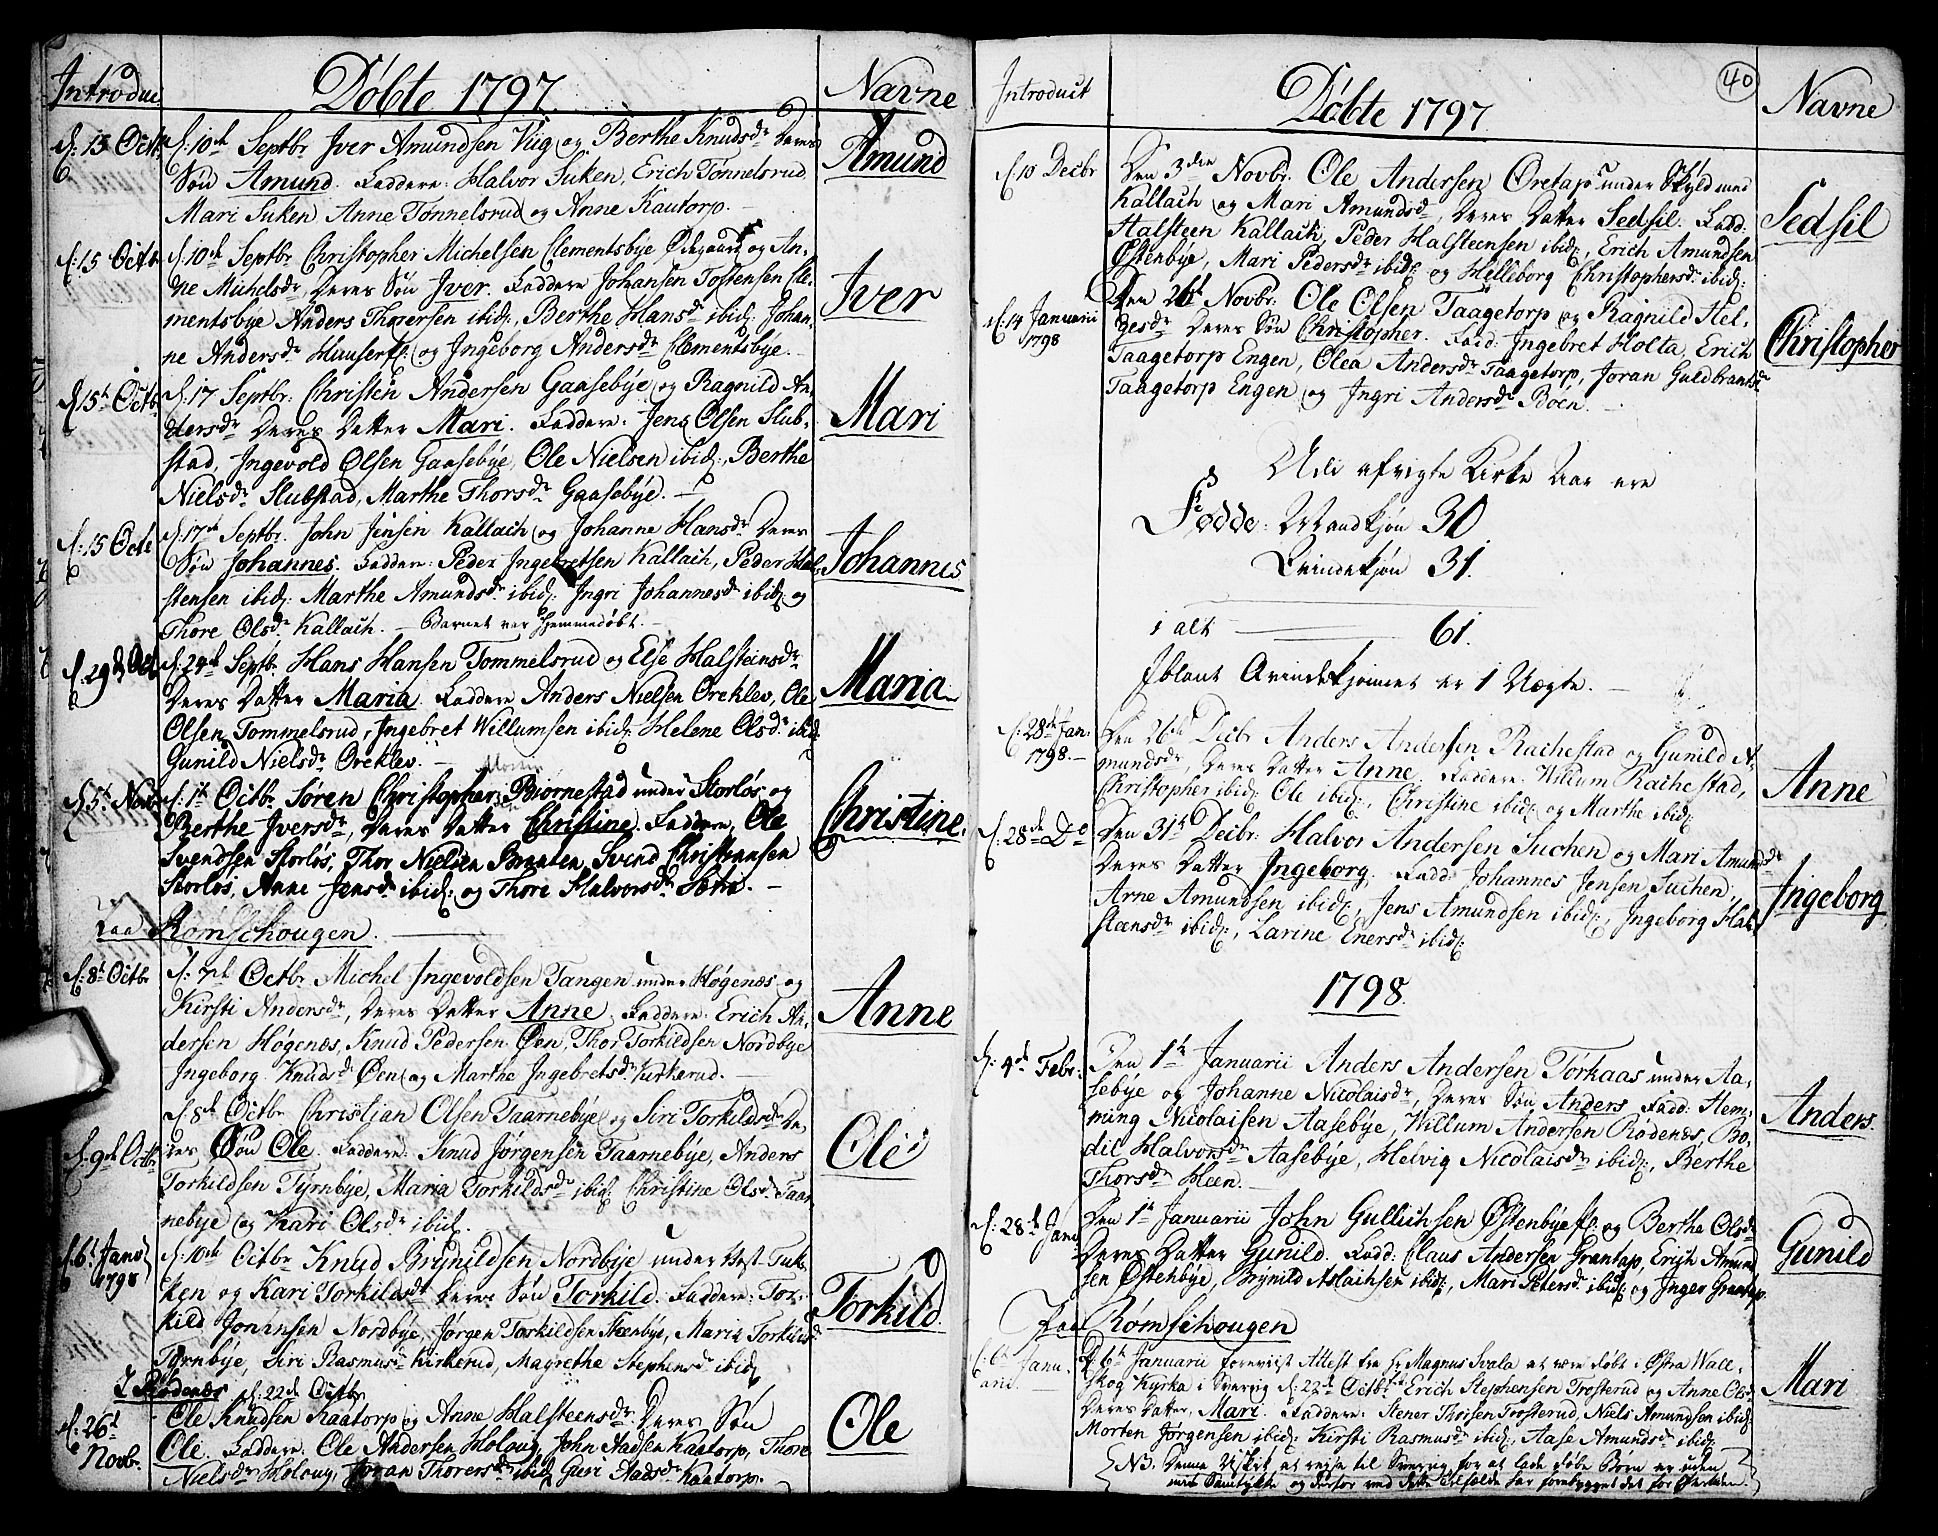 Introduc
Döbte 1797.
Navne
d: 15 Octb:
d: 10de Septbr Jver Amundsen Viig og Berthe Knudsdr Deres
Amund
Søn Amund. Faddere: Halvor Suken, Erich Tønnelsrud
Mari Suken, Anne Tønnelsrud og Anne Kautorp.
d: 15 Octb
d: 10de Septbr Christopher Michelsen Clementsbye Ødegaard og An-
Jver
ne Michelsdr, Deres Søn Jver. Faddere Johansen Tostensen Cle-
mentsbye Anders Thorersen ibid:, Berthe Hansdr ibid: Johan-
ne Andersdr og Ingeborg Andersdr Clementsbye.
d 15t Octb
d: 17 Septbr: Christen Andersen Gaasebye og Ragnild An-
Mari
dersdr Deres Datter Mari. Faddere: Jens Olsen Slub-
stad, Ingevold Olsen Gaasebye, Ole Nielsen ibid:, Berthe
Nielsdr Slubstad, Marthe Thorsdr Gaasebye.
d: 15 Octb
d: 17de Septbr. John Jensen Kallach og Johanne Hansdr Deres
Johannes
Søn Johannes. Faddere: Peder Ingebretsen Kallach, Peder Hal-
stensen ibid: Marthe Amundsdr ibid: Ingri Johannesdr ibid: og
Thore Olsdr Kallach. Barnet var Hjemmedöbt.
d. 29de Oct
d: 24de Septbr Hans Hansen Tommelsrud og Else Halsteinsdr
Maria
Deres Datter Maria. Faddere Anders Nielsen Oreklev, Ole
Olsen Tommelsrud, Ingebret Willumsen ibid: Helene Olsdr ibid
Gunild Nielsdr Oreklev.
d 5t Novb
d: 1t Octbr Søren Christopher: Biørnestad under Storløs og
Christine.
Berthe Jversdr, Deres Datter Christine. Faddere, Ole
Svendsen Storløs, Thor Nielsen Braaten, Svend Christiansen
Storløs, Anne Jensdr ibid: og Thore Halvorsdr Sætri.
Rømschougen.
d: 8t Octbr
d: 7de Octbr Michel Ingevoldsen Tangen under Høgenæs og
Anne
Kirsti Andersdr, Deres Datter Anne. Faddere: Erich An-
dersen Høgenæs, Knud Pedersen Øen, Thor Torkildsen Nordbye
Ingeborg Knudsdr Øen og Marthe Ingebretsdr Kirkerud.
d: 9de Octbr
d: 8de Octbr Christian Olsen Taarnebye og Siri Torkildsdr De-
Ole
res Søn Ole. Faddere: Knud Jørgensen Taarnebye, Anders
Torkildsen Tyrnbye, Maria Torkildsdr ibid: Christine Olsdr Taar
nebye og Kari Olsdr ibid.
d: 6t Janu
1798
d: 10de Octbr Knud Brynildsen Nordbye under Vest-Tuk-
Torkild.
ken og Kari Torkildsdr Deres Søn Torkild. Faddere: Tor-
kild Johansen Nordbye, Jørgen Torkildsen Steenbye, Maria Torkildsdr
Tørnbye, Siri Rasmusdr Kirkerud, Magrethe Stephensdr ibid
I Rødenæs
d: 22de Octbr
d: 26t
Novb.
Ole Knudsen Kaatorp og Anne Halsteensdr Deres Søn
Ole
Ole. Faddere: Ole Andersen Holoug, John Aadsen Kaatorp, Thore
Nielsdr Holoug, Joran Thorersdr ibid Guri Aadsdr Kaatorp.
40
Introduct
Döbte 1797.
Navne
d. 10 Decbr
Den 3die Novbr. Ole Andersen Oretap under Skyld med
Sedsil
Kallach og Mari Amundsdr, Deres Datter Sedsil. Fadd:
Halsteen Kallach, Peder Halsteensen ibid:, Erich Amundsen
Østenbye, Mari Pedersdr ibid: og Helleborg Christophersdr ibid:
d: 14 Januarii
1798
Den 26t Novbr: Ole Olsen Taagetorp og Ragnild Hel-
Christopher
gesdr Deres Søn Christopher. Fadd: Ingebret Holta, Erich
Taagetorp Engen, Olea Andersdr Taagetorp, Joran Guldbrantsdr
Taagetorp Engen og Ingri Andersdr Boen.
Udi afvigte Kirke Aar ere
Födde: Mandkjön 30
Qvindekjön 31.
i alt 61.
Jblant Qvindekjönnet er 1 Uægte.
d: 28de Jan.
1798.
Den 26de Decbr Anders Andersen Rachestad og Gunild A-
Anne
mundsdr, Deres Datter Anne. Faddere: Willum Rachestad,
Christopher ibid: Ole ibid:, Christine ibid: og Marthe ibid:
d: 28de Do
Den 31t Decbr: Halvor Andersen Suchen og Mari Amundsdr
Ingeborg
Deres Datter Ingeborg. Fadd: Johannes Jensen Suchen,
Arne Amundsen ibid:, Jens Amundsen ibid:, Ingeborg Hal-
stensdr ibid:, Larine Enersdr ibid:
1798.
d: 4de Febr.
Den 1t Januarii Anders Andersen Torkaas under Aa-
Anders.
sebye og Johanne Nicolaisdr, Deres Søn Anders. Fadd: Hem-
ming Nicolaisen Aasebye, Willum Andersen Rødenæs, Bo-
dil Halvorsdr Aasebye, Helvig Nicolaisdr ibid:, Berthe
Thorsdr Heen.
d: 28de Janu
Den 1t Januarii John Gullichsen Østenbye og Berthe Olsdr
Gunild
Deres Datter Gunild. Fadd: Claus Andersen Grantap, Erich Amund-
sen Østenbye, Brynild Aslachsen ibid:, Mari Petersdr ibid: og Inger Grantap.
Fra Rømschougen
d: 6te Janu-
arii.
D: 6t Januarii foreviist Attest fra Hr Magnus Svala at være døbt i Østra Wall-
Mari
skog Kyrka i Sverrig d: 22de Octbr Erich Stephensen Trosterud og Anne Olsdr
Deres Datter, Mari. Faddere: Stener Thorsen Trosterud, Niels Amundsen ibid:
Morten Jørgensen ibid: Kirsti Rasmusdr ibid:, Aase Amundsdr ibid:
NB. Denne Uskik at rejse til Sverrig for at lade døbe Børn er uden
mit Samtykke og derfor ved dette Tilfælde har forebygget det for Eftertiden.